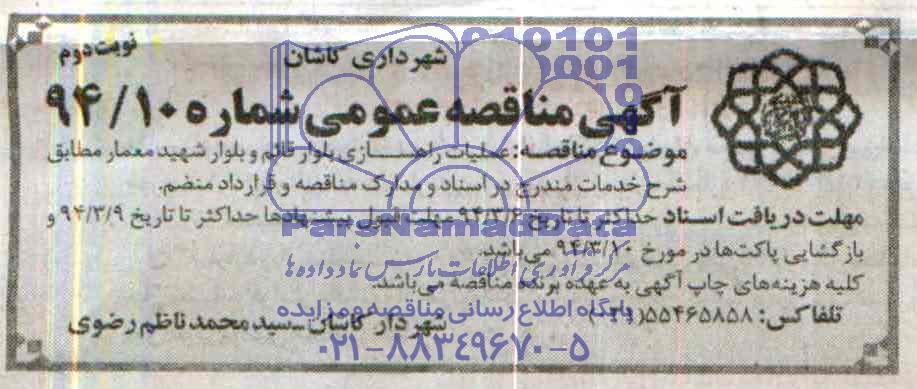 نوبت دوم
شهرداری کاشان
آگهی مناقصه عمومی شماره ۹۴/۱۰
موضوع مناقصه: عملیات راهسازی بلوار قائم و بلوار شهید معمار مطابق
شرح خدمات مندرج در اسناد و مدارک مناقصه و قرارداد منضم.
مهلت دریافت اسناد حداکثر تا تاریخ ۹۴/۳/۶ مهلت قبول پیشنهادها حداکثر تا تاریخ ۹۴/۳/۹ و
بازگشایی پاکت‌ها در مورخ ۹۴/۳/۱۰ می‌باشد.
کلیه هزینه‌های چاپ آگهی به عهده برنده مناقصه می‌باشد.
تلفاکس: ۵۵۴۶۵۸۵۸
شهردار کاشان – سید محمد ناظم رضوی
ParsNamadData
مرکز فرآوری اطلاعات پارس نماد داده ها
پایگاه اطلاع رسانی مناقصه و مزایده
۰۲۱-۸۸۳۴۹۶۷۰-۵